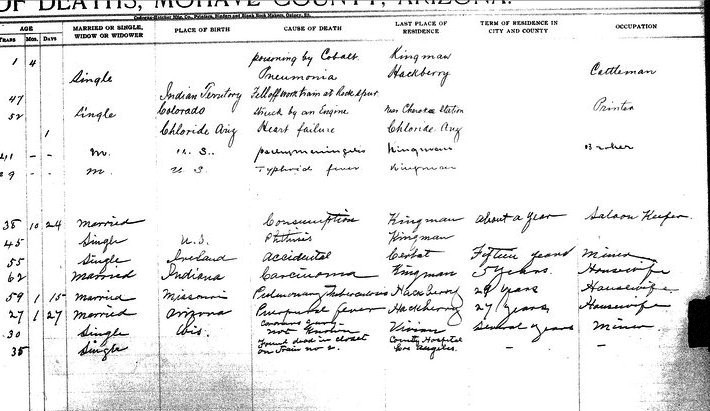 OF DEATHS, MOHAVE COUNTY, ARIZONA.
AGE MARRIED OR SINGLE, WIDOW OR WIDOWER PLACE OF BIRTH CAUSE OF DEATH LAST PLACE OF RESIDENCE TERM OF RESIDENCE IN CITY AND COUNTY OCCUPATION
YEARS MOS. DAYS
1 4 poisoning by Cobalt Kingman
Single Pneumonia Hackberry Cattleman
47 Indian Territory Fell off work train at Rock Spur
52 Single Colorado Struck by an Engine Near Cherokee Station Printer
1 Chloride Ariz Heart failure Chloride Ariz
41 - - M. U. S. Kingman
29 - - M. U S Typhoid fever Kingman
38 10 24 Married Consumption Kingman About a Year Saloon Keeper
45 Single U.S. Phthisis Kingman
55 Single Ireland Accidental Cerbat Fifteen years Miner
62 Married Indiana Carcinoma Kingman 5 Years. Housewife
59 1 15 Married Missouri Pulmonary Tuberculosis Hackberry 29 Years Housewife
27 1 27 Married Arizona Puerperal fever Hackberry 27 Years Housewife
30 Single Wis. not Known Vivian Several Years Miner
35 Single Found dead in closet on Train no 2. County Hospital Los Angeles. - -